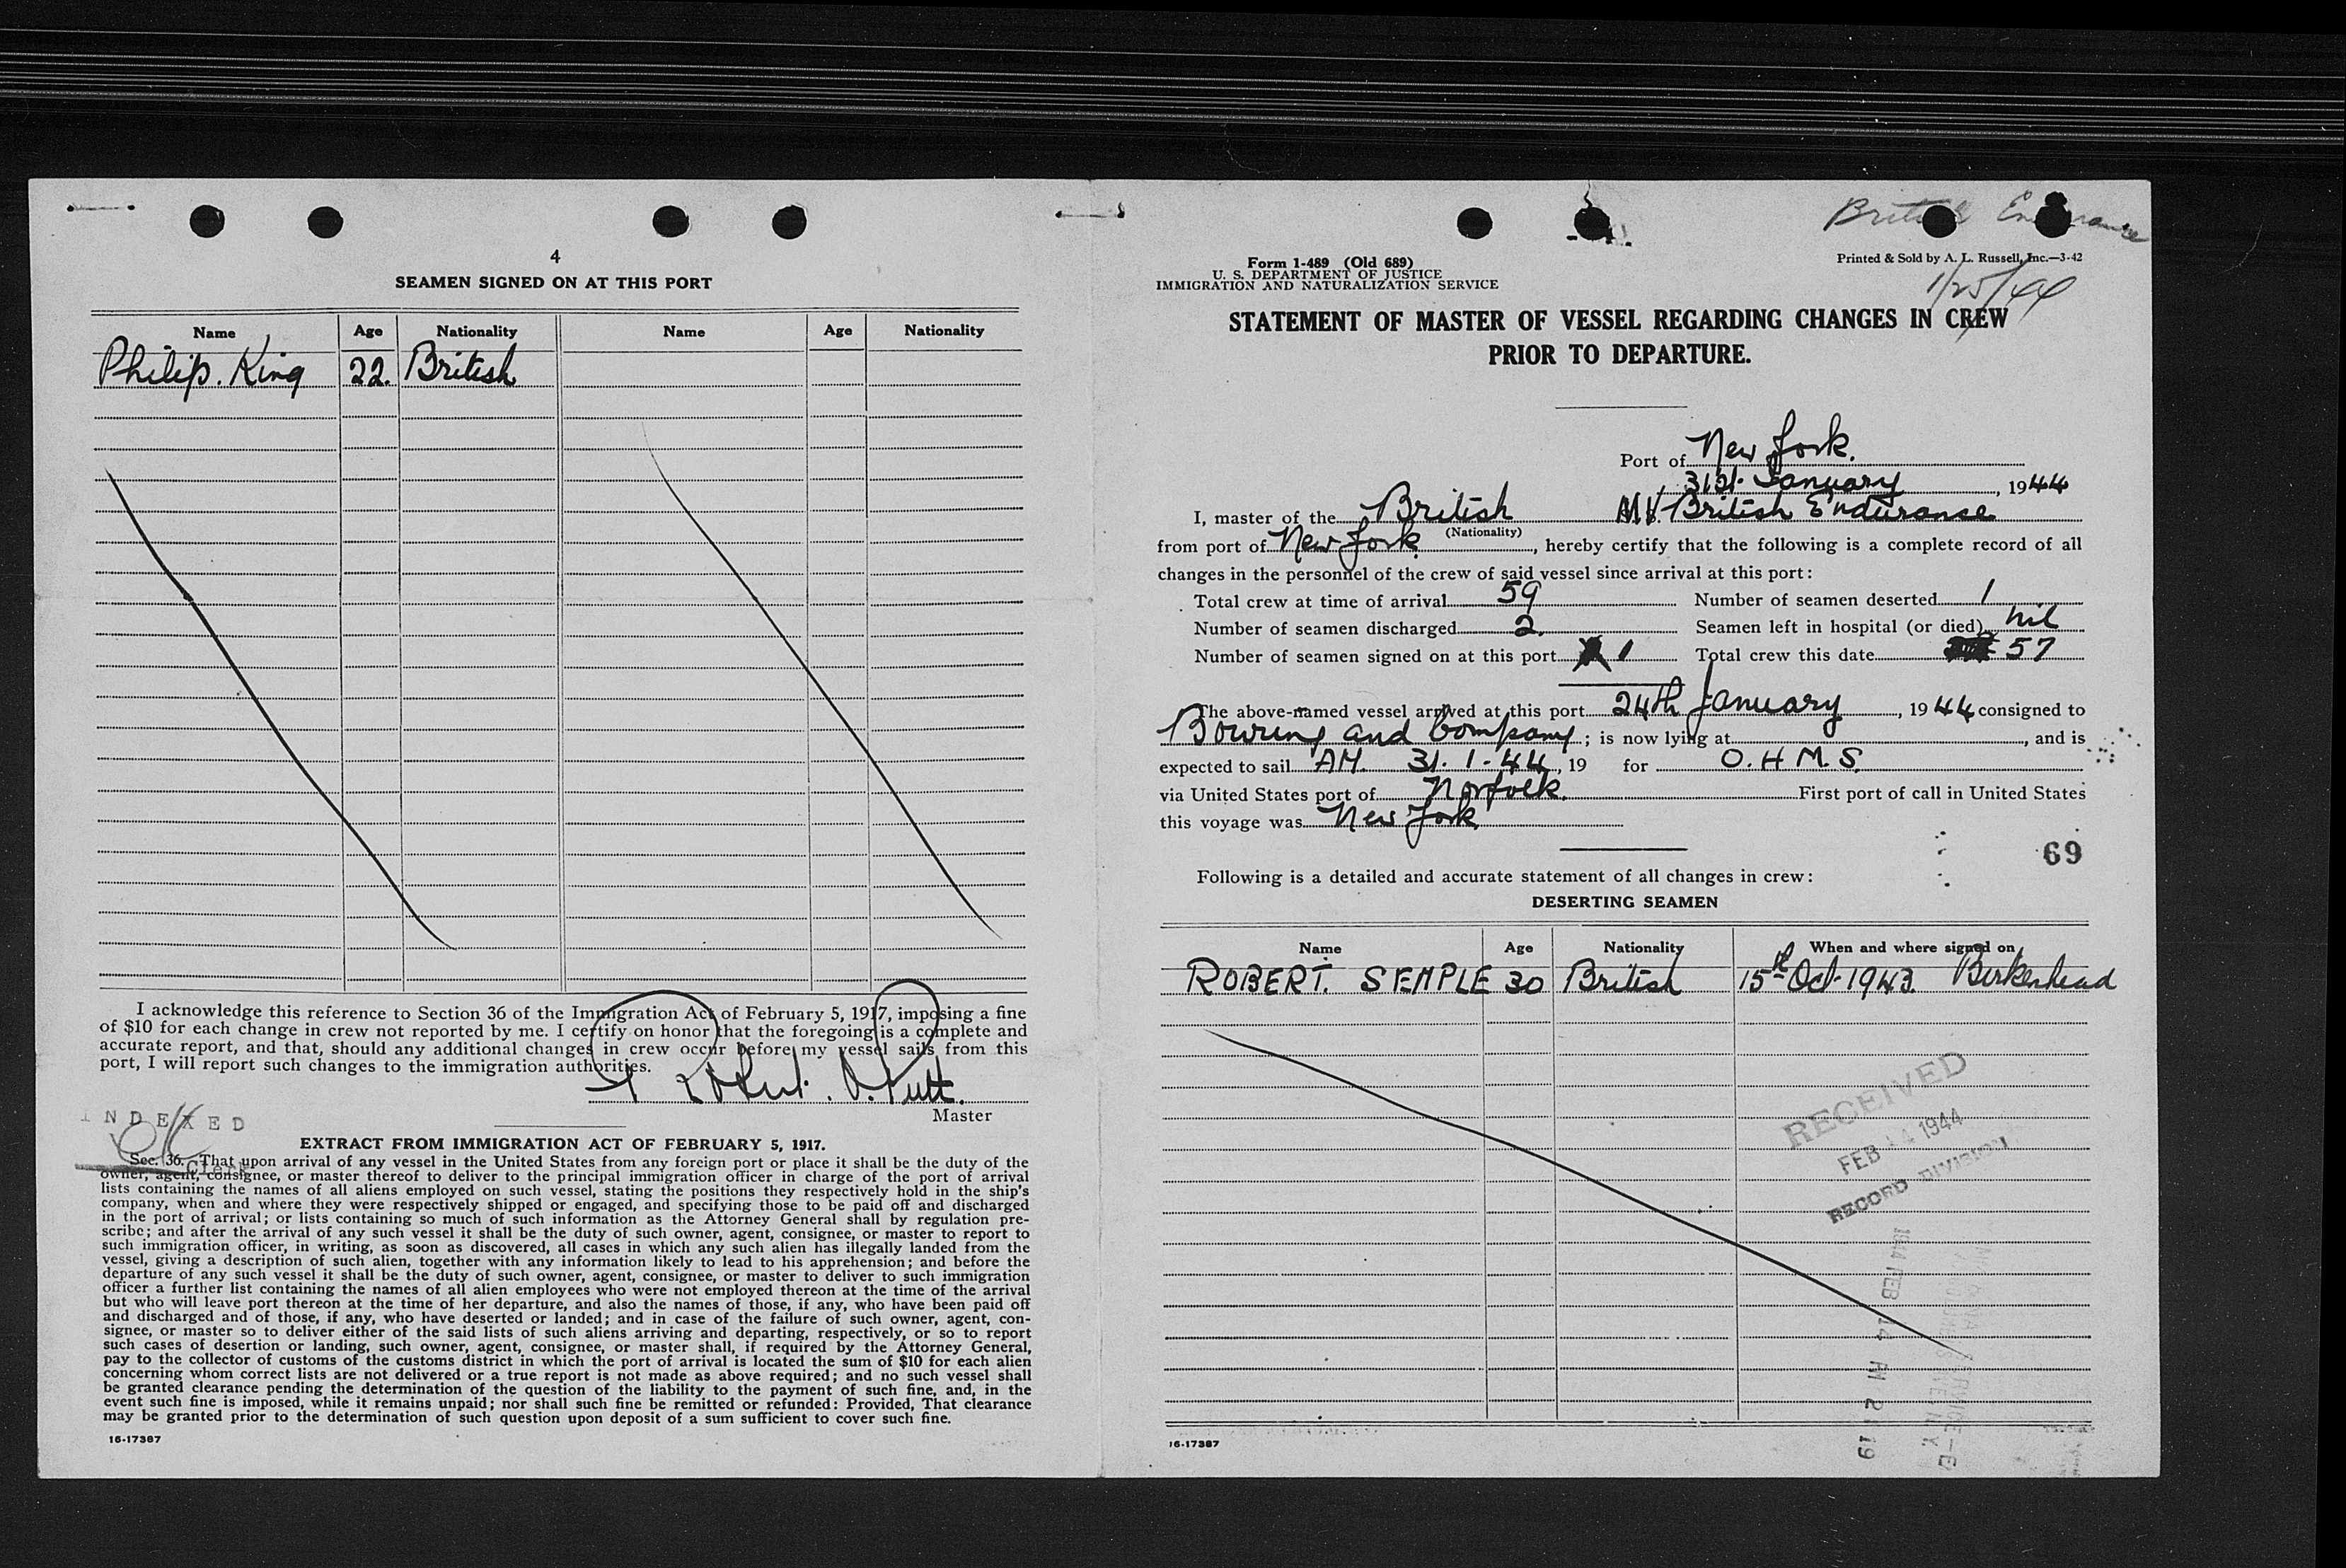 4
SEAMEN SIGNED ON AT THIS PORT
Name Age Nationality Name Age Nationality
Philip. King 22. British
I acknowledge this reference to Section 36 of the Immigration Act of February 5, 1917, imposing a fine
of $10 for each change in crew not reported by me. I certify on honor that the foregoing is a complete and
accurate report, and that, should any additional changes in crew occur before my vessel sails from this
port, I will report such changes to the immigration authorities.
Master
INDEXED
OK
Clerk
EXTRACT FROM IMMIGRATION ACT OF FEBRUARY 5, 1917.
Sec. 36. That upon arrival of any vessel in the United States from any foreign port or place it shall be the duty of the
owner, agent, consignee, or master thereof to deliver to the principal immigration officer in charge of the port of arrival
lists containing the names of all aliens employed on such vessel, stating the positions they respectively hold in the ship's
company, when and where they were respectively shipped or engaged, and specifying those to be paid off and discharged
in the port of arrival; or lists containing so much of such information as the Attorney General shall by regulation pre-
scribe; and after the arrival of any such vessel it shall be the duty of such owner, agent, consignee, or master to report to
such immigration officer, in writing, as soon as discovered, all cases in which any such alien has illegally landed from the
vessel, giving a description of such alien, together with any information likely to lead to his apprehension; and before the
departure of any such vessel it shall be the duty of such owner, agent, consignee, or master to deliver to such immigration
officer a further list containing the names of all alien employees who were not employed thereon at the time of the arrival
but who will leave port thereon at the time of her departure, and also the names of those, if any, who have been paid off
and discharged and of those, if any, who have deserted or landed; and in case of the failure of such owner, agent, con-
signee, or master so to deliver either of the said lists of such aliens arriving and departing, respectively, or so to report
such cases of desertion or landing, such owner, agent, consignee, or master shall, if required by the Attorney General,
pay to the collector of customs of the customs district in which the port of arrival is located the sum of $10 for each alien
concerning whom correct lists are not delivered or a true report is not made as above required; and no such vessel shall
be granted clearance pending the determination of the question of the liability to the payment of such fine, and, in the
event such fine is imposed, while it remains unpaid; nor shall such fine be remitted or refunded: Provided, That clearance
may be granted prior to the determination of such question upon deposit of a sum sufficient to cover such fine.
16-17387
British Endurance
Form 1-489 (Old 689)
U. S. DEPARTMENT OF JUSTICE
IMMIGRATION AND NATURALIZATION SERVICE
Printed & Sold by A. L. Russell, Inc.—3-42
1/25/44
STATEMENT OF MASTER OF VESSEL REGARDING CHANGES IN CREW
PRIOR TO DEPARTURE.
Port of New York.
31st. January, 1944
I, master of the British M.V. British Enduranse
(Nationality)
from port of New York, hereby certify that the following is a complete record of all
changes in the personnel of the crew of said vessel since arrival at this port:
Total crew at time of arrival 59 Number of seamen deserted 1
Number of seamen discharged 2. Seamen left in hospital (or died) nil
Number of seamen signed on at this port 1 Total crew this date 57
The above-named vessel arrived at this port 24th January, 1944 consigned to
Bowring and Company; is now lying at, and is
expected to sail AM. 31. 1. 44, 19 for O.H.M.S.
via United States port of Norfolk. First port of call in United States
this voyage was New York
69
Following is a detailed and accurate statement of all changes in crew:
DESERTING SEAMEN
Name Age Nationality When and where signed on
ROBERT. SEMPLE 30 British 15th Oct. 1943. Birkenhead
RECEIVED
FEB 14 1944
RECORD DIVISION
1944 FEB 14 AM 2 19
16-17387